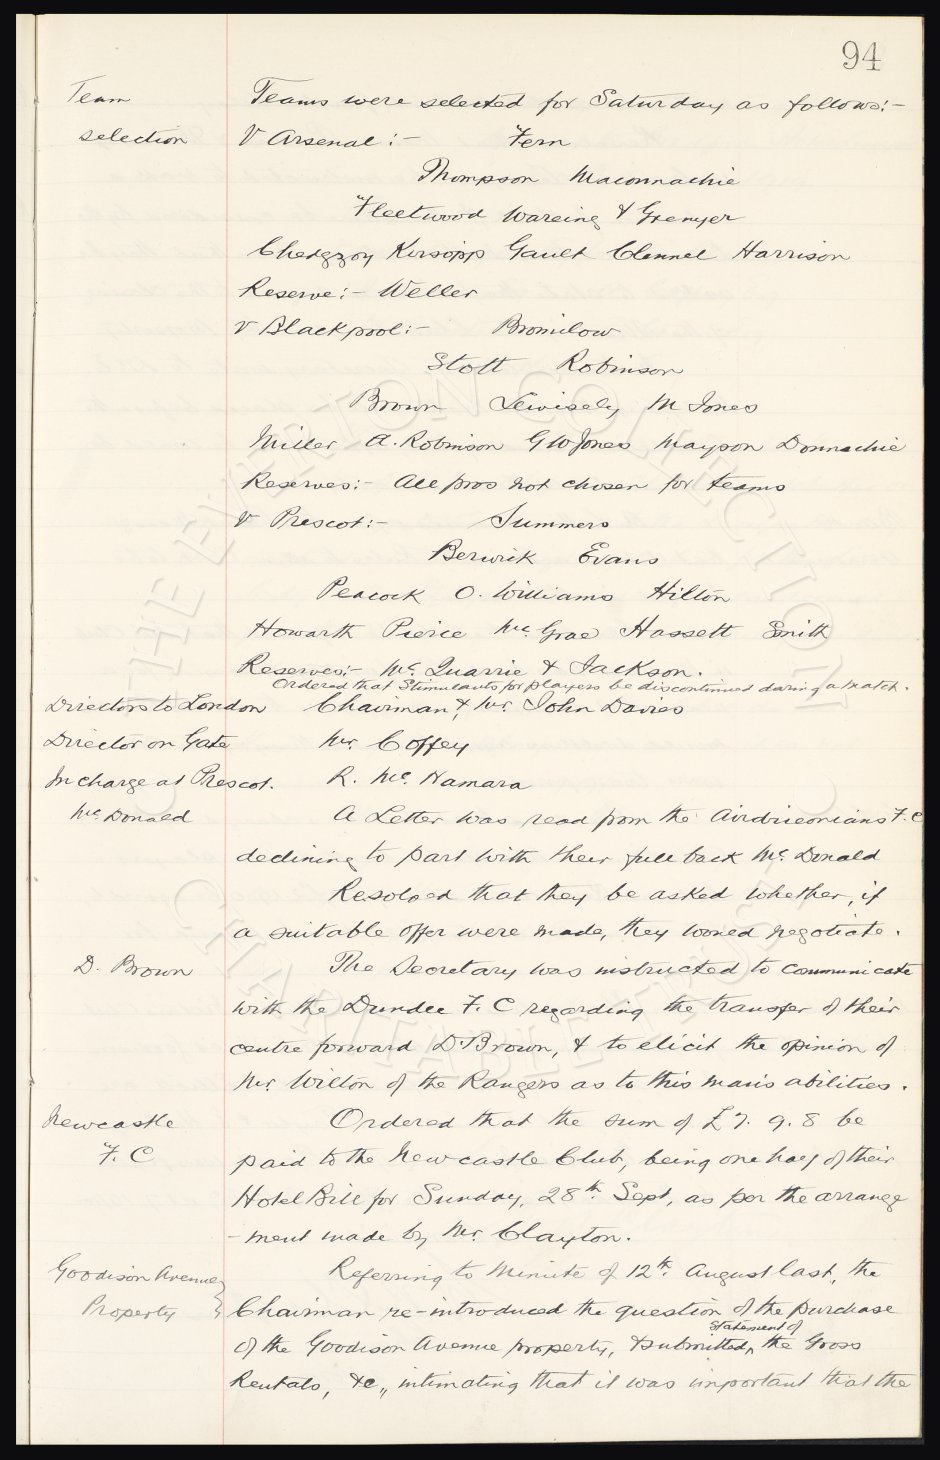 94
Team Teams were selected for Saturday as follows:-
selection V Arsenal:- Fern
Thompson Maconnachie
Fleetwood Wareing & Grenyer
Chedgzoy Kirsopp Gault Clennel Harrison
Reserve:- Weller
V Blackpool:- Bromilow
Stott Robinson
Brown Lewisely M Jones
Miller A. Robinson G W Jones Mayson Donnachie
Reserves:- All pros not chosen for teams
V Prescot:- Summers
Berwick Evans
Peacock O. Williams Hilton
Howarth Pierce McGrae Hassett Smith
Reserves:- Mc.Quarrie & Jackson.
Ordered that Stimulants for players be discontinued during a match.
Directors to London Chairman & Mr. John Davies
Director on Gate Mr Coffey
In charge at Prescot. R. Mc Namara
Mc Donald A Letter was read from the Airdrieonians F.C
declining to part with their full back Mc. Donald
Resolved that they be asked whether, if
a suitable offer were made, they would negotiate.
D. Brown The Secretary was instructed to communicate
with the Dundee F. C regarding the transfer of their
centre forward D. Brown, & to elicit the opinion of
Mr. Wilton of the Rangers as to this man's abilities.
Newcastle Ordered that the sum of £7. 9. 8 be
F. C paid to the Newcastle Club, being one half of their
Hotel Bill for Sunday, 28th. Sept, as per the arrange
-ment made by Mr. Clayton.
Goodison Avenue Referring to Minute of 12th. August last, the
Property Chairman re-introduced the question of the purchase
of the Goodison Avenue property, & submitted, statement of the Gross
Rentals, &c,, intimating that it was important that the
THE EVERTON COLLECTION